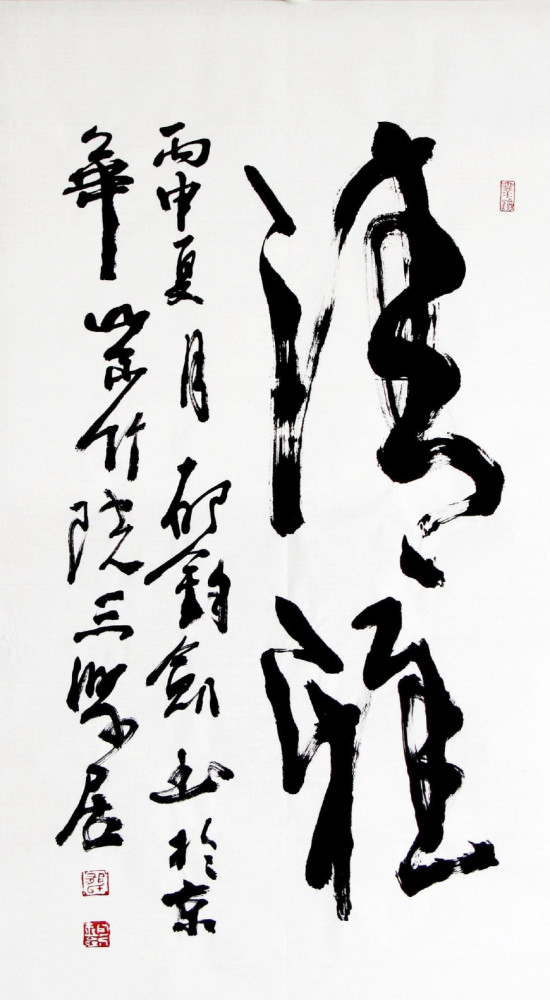 清雅
丙申夏月郁鈞劍书於京
華紫竹院三學居